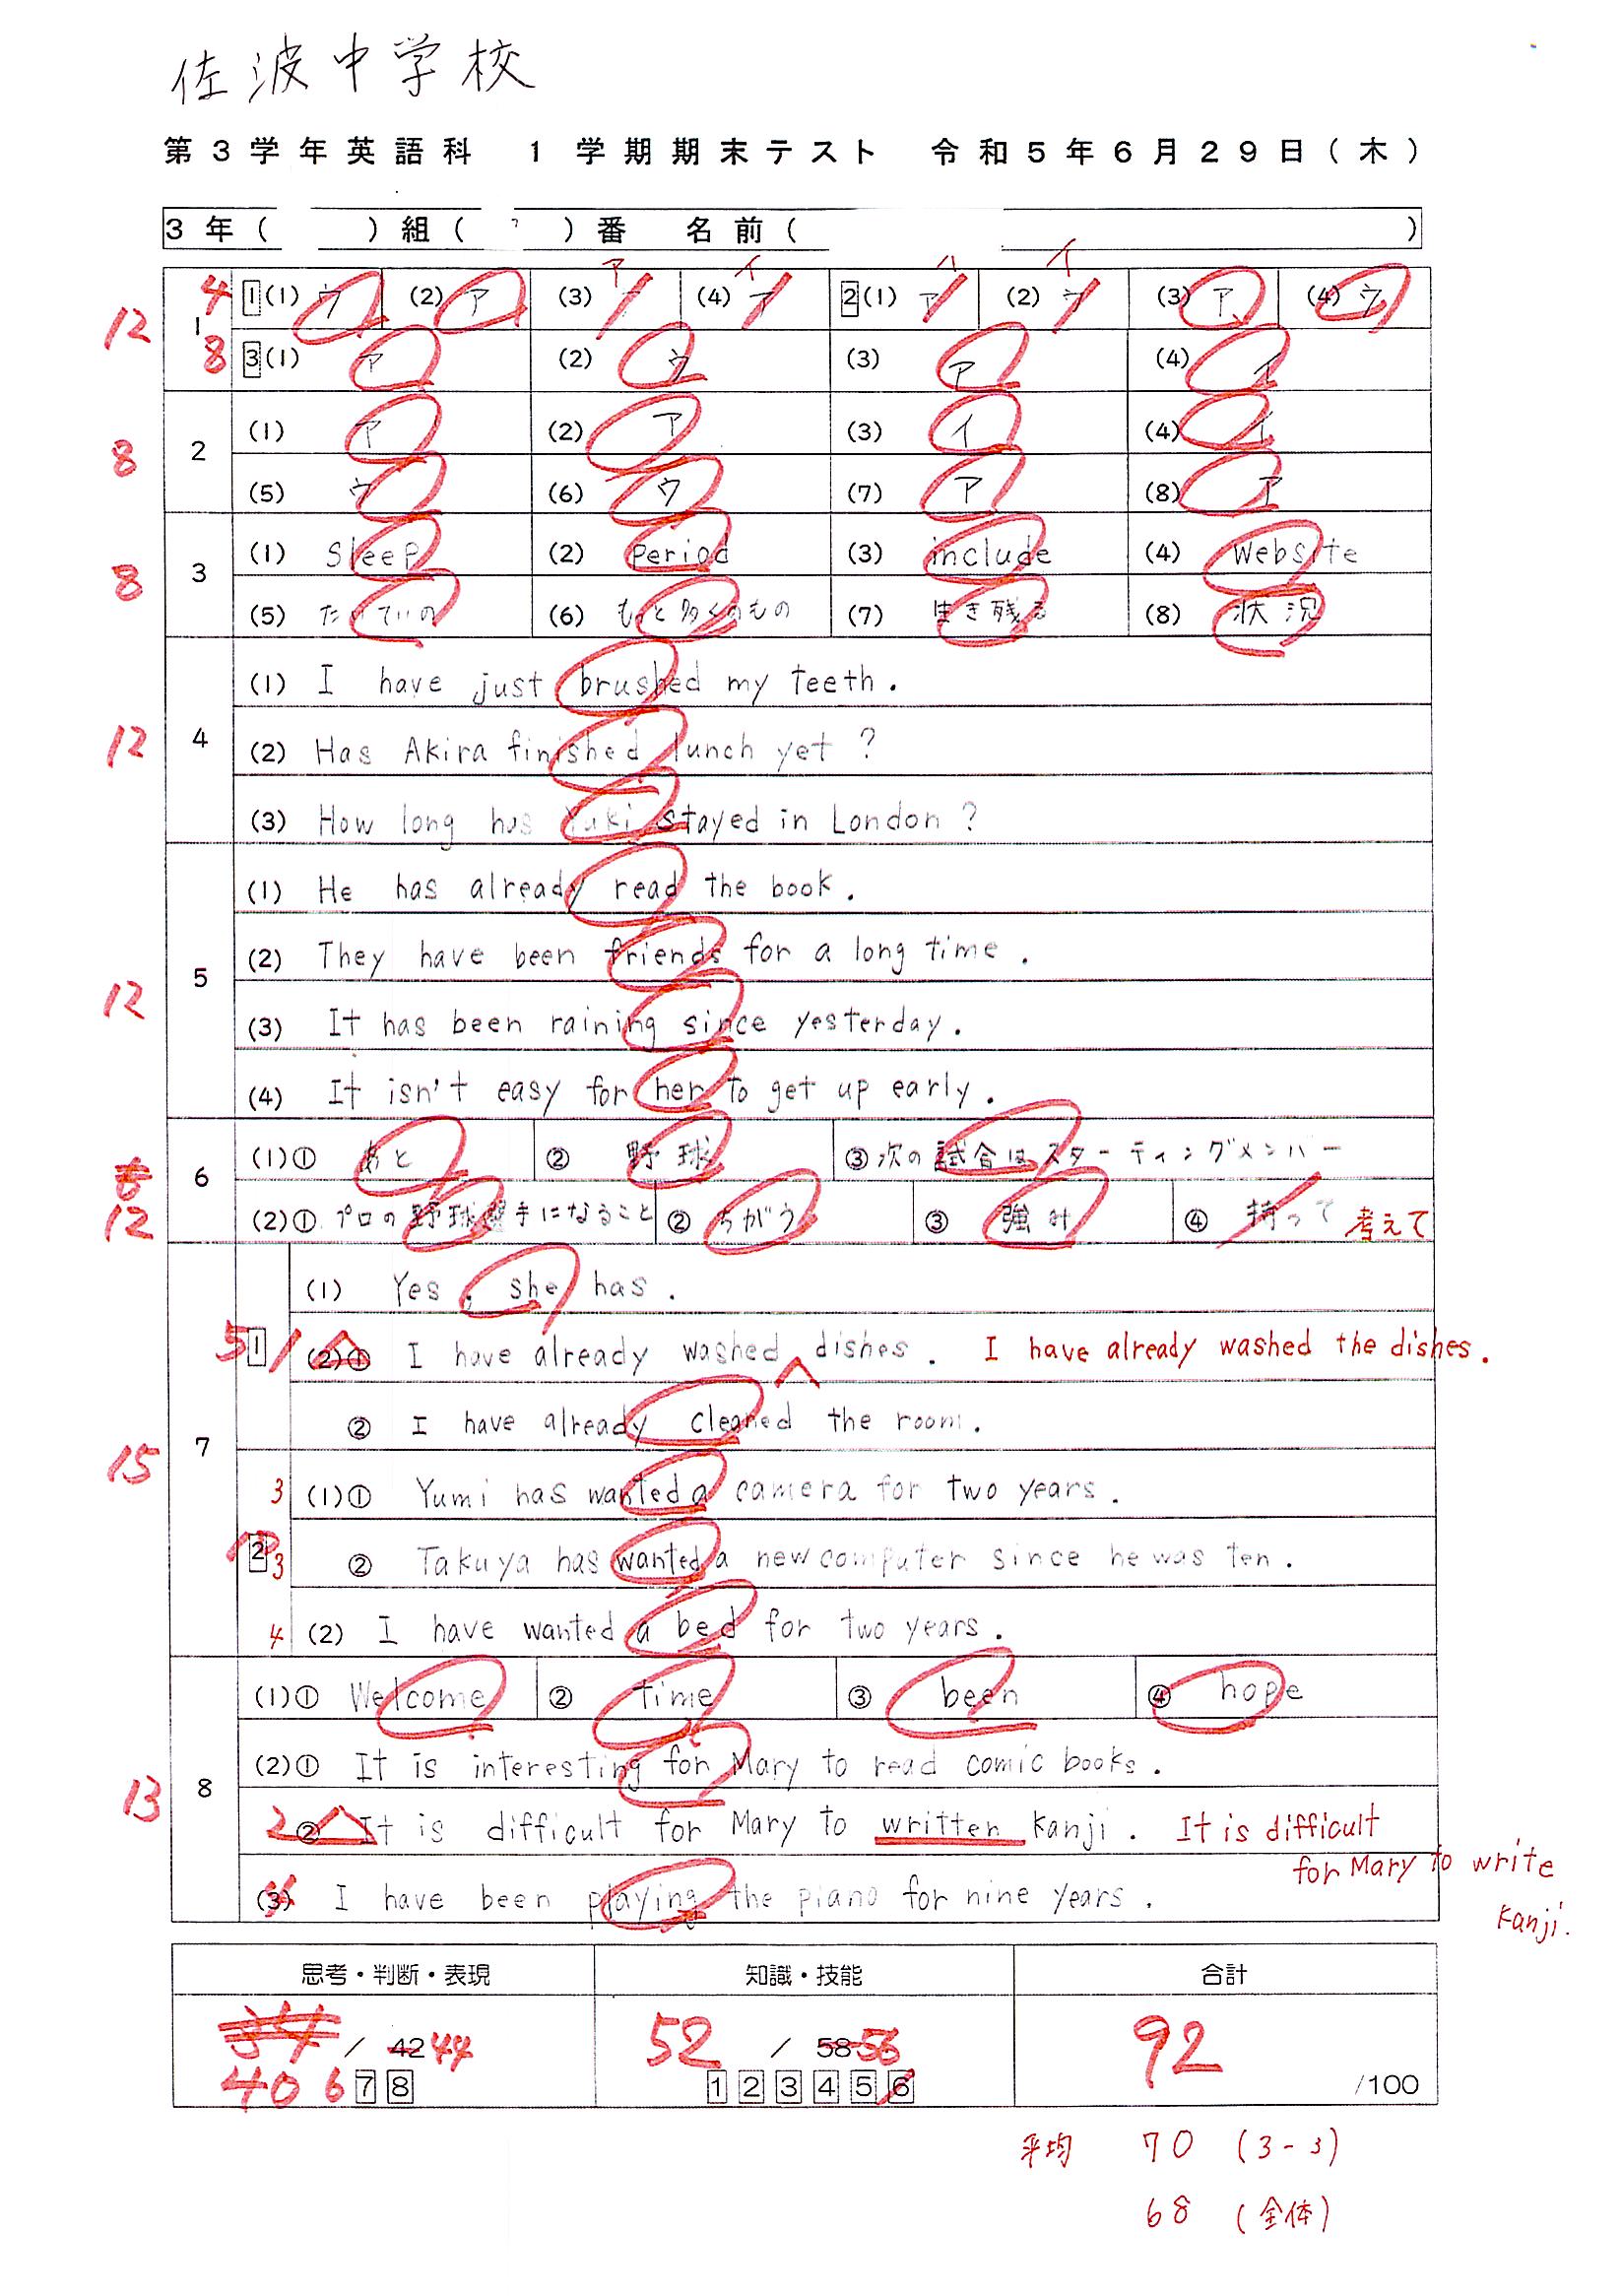 佐波中学校
第3学年英語科 1学期期末テスト 令和5年6月29日(木)
3年( )組( )番 名前( )
ア イ イ
4 1 (1) ウ (2) ア (3) (4) ア 2 (1) ア (2) ウ (3) ア (4) ウ
12 1
8 3 (1) ア (2) ウ (3) ア (4) イ
(1) ア (2) ア (3) イ (4) イ
8 2
(5) ウ (6) ウ (7) ア (8) ア
(1) sleep (2) period (3) include (4) website
8 3
(5) たいていの (6) もっと多くのもの (7) 生き残る (8) 状況
(1) I have just brushed my teeth.
12 4 (2) Has Akira finished lunch yet?
(3) How long has Yuki stayed in London?
(1) He has already read the book.
(2) They have been friends for a long time.
12 5
(3) It has been raining since yesterday.
(4) It isn't easy for her to get up early.
(1)① あと ② 野球 ③ 次の試合はスターティングメンバー
6
12 (2)① プロの野球選手になること ② ちがう ③ 強み ④ 持って 考えて
(1) Yes, she has.
5 1 1 (2)① I have already washed dishes. I have already washed the dishes.
② I have already cleaned the room.
15 7
3 (1)① Yumi has wanted a camera for two years.
10 2 3 ② Takuya has wanted a new computer since he was ten.
4 (2) I have wanted a bed for two years.
(1)① Welcome ② time ③ been ④ hope
(2)① It is interesting for Mary to read comic books.
13 8
2 ② It is difficult for Mary to written kanji. It is difficult
for Mary to write
kanji.
4 (3) I have been playing the piano for nine years.
思考・判断・表現 知識・技能 合計
34 / 42 44 52 / 58 56 92
40 6 7 8 1 2 3 4 5 6 /100
平均 70 (3-3)
68 (全体)